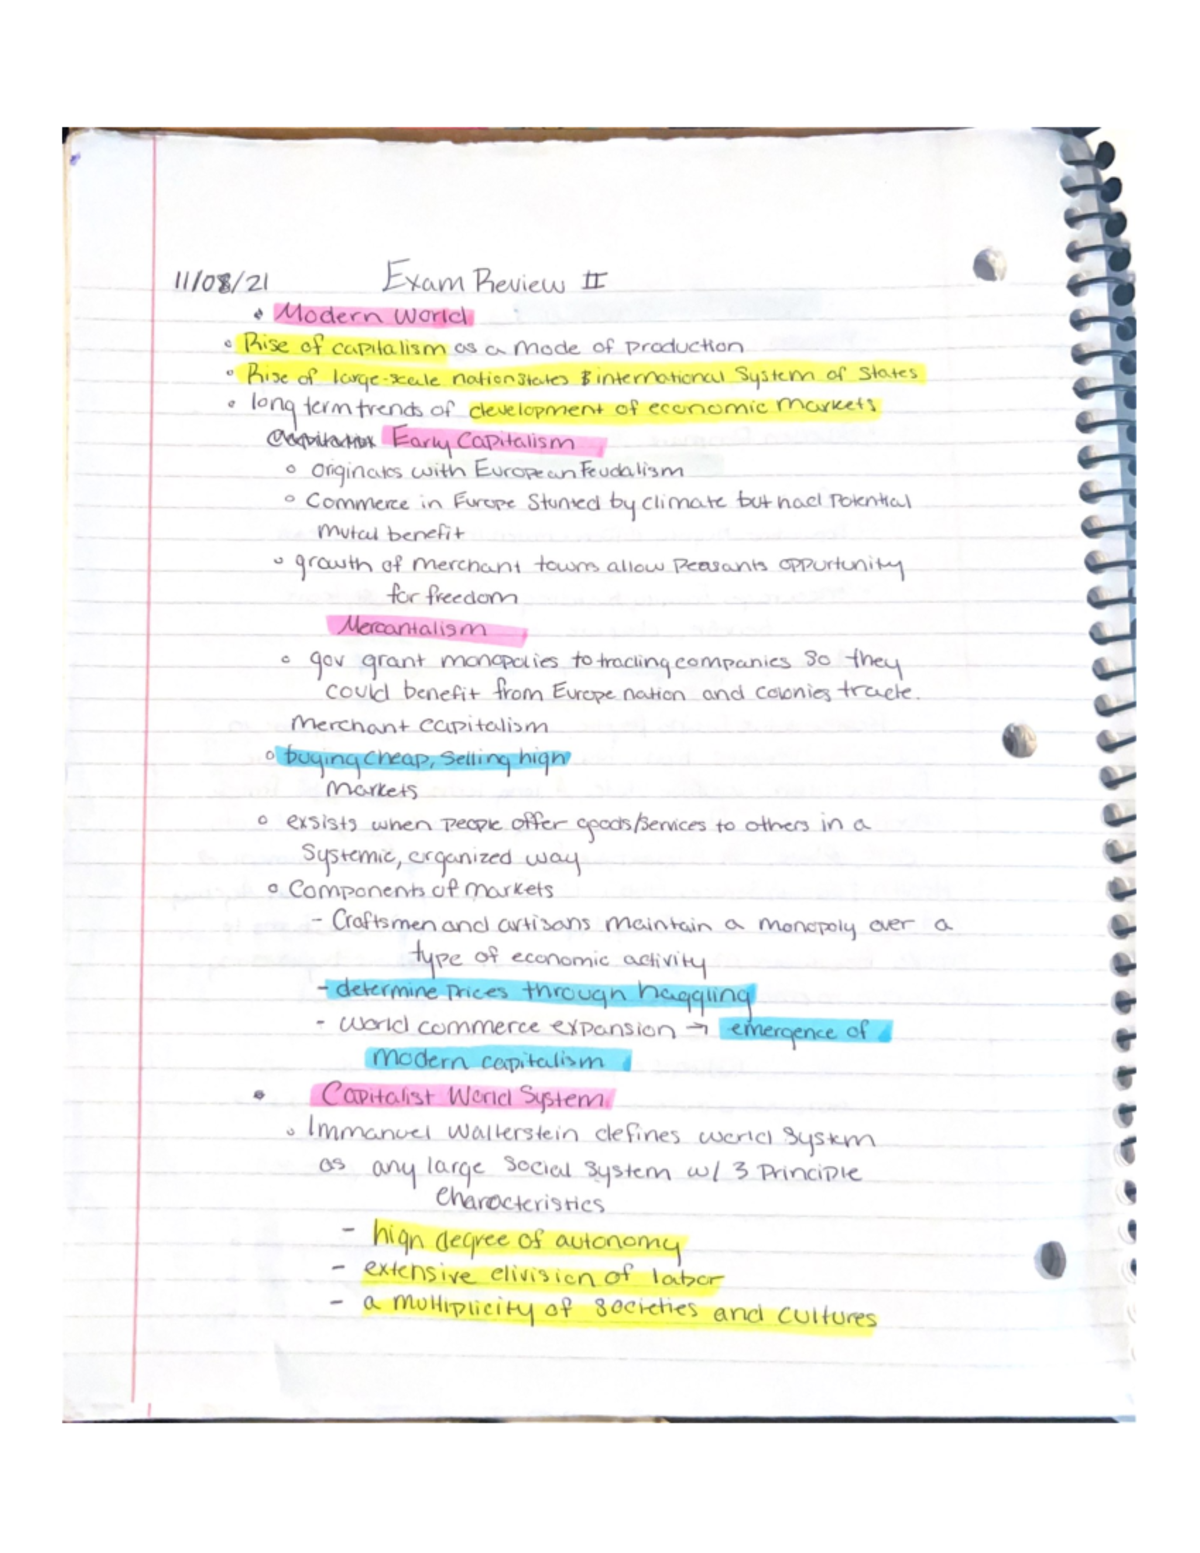 11/08/21 Exam Review II
Modern World
Rise of capitalism as a mode of production
Rise of large-scale nationstates & international System of States
long term trends of development of economic markets
Early Capitalism
originates with European Feudalism
Commerce in Europe Stunted by climate but had Potential
mutal benefit
growth of merchant towns allow Peasants oppurtunity
for freedom
Mercantalism
gov grant monopolies to trading companies so they
could benefit from Europe nation and colonies trade.
Merchant capitalism
buying cheap, selling high
Markets
exsists when people offer goods/services to others in a
Systemic, organized way
Components of markets
- Craftsmen and artisans maintain a monopoly over a
type of economic activity
- determine prices through haggling
- world commerce expansion → emergence of
modern capitalism
Capitalist World System
Immanuel Wallerstein defines world system
as any large social system w/ 3 Principle
Characteristics
- high degree of autonomy
- extensive division of labor
- a multiplicity of societies and cultures